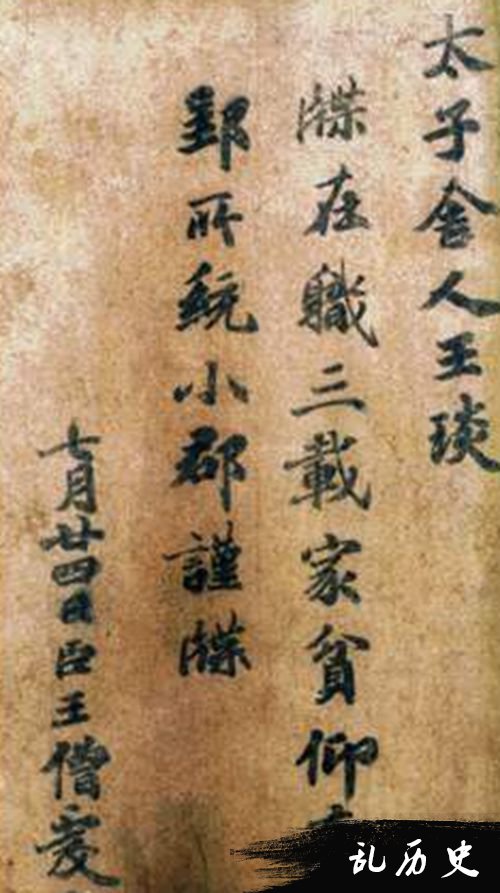 太子舍人王琰
牒在職三載家貧仰
郢所統小郡謹牒
七月廿四日臣王僧虔
乱历史